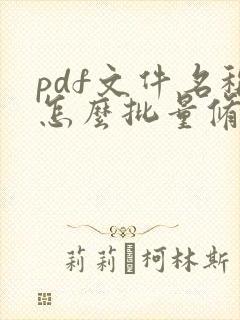 pdf文件名稱
怎麼批量修
莉莉·柯林斯